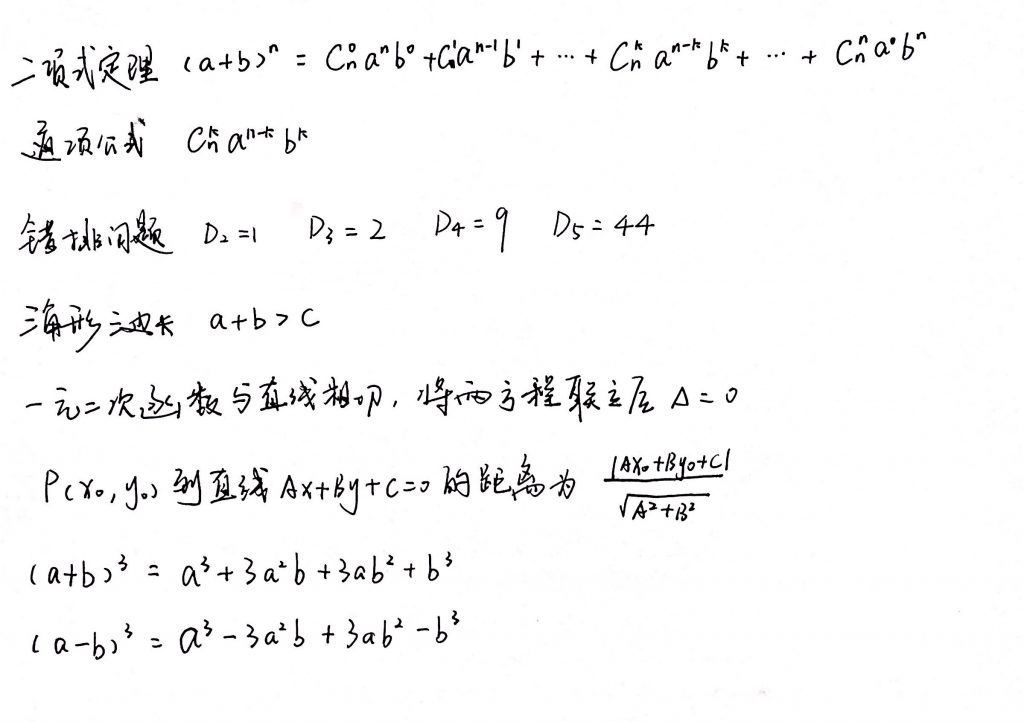 二项式定理 (a+b)ⁿ = Cₙ⁰aⁿb⁰+Cₙ¹aⁿ⁻¹b¹+⋯+Cₙᵏaⁿ⁻ᵏbᵏ+⋯+Cₙⁿa⁰bⁿ
通项公式 Cₙᵏaⁿ⁻ᵏbᵏ
错排问题 D₂=1 D₃=2 D₄=9 D₅=44
三角形三边长 a+b>c
一元二次函数与直线相切,将两方程联立后 Δ=0
P(x₀,y₀)到直线Ax+By+C=0的距离为 |Ax₀+By₀+C|/√(A²+B²)
(a+b)³ = a³+3a²b+3ab²+b³
(a-b)³ = a³-3a²b+3ab²-b³